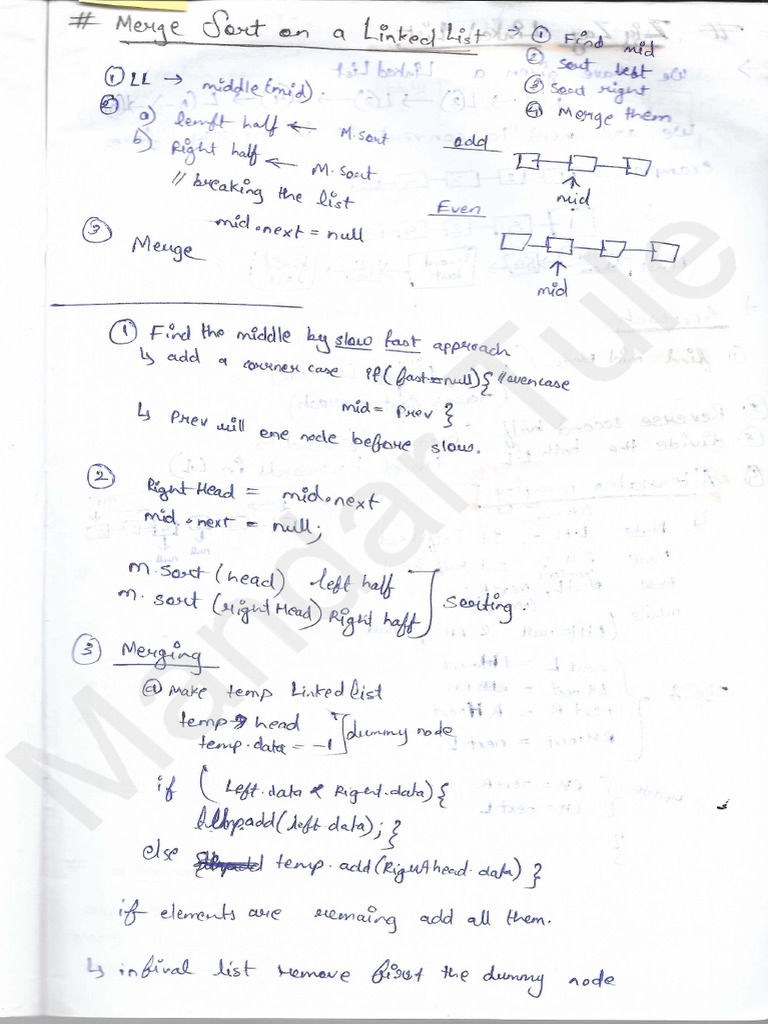 # Merge Sort on a Linked List → ① Find mid
② sort left
③ Sort right
④ Merge them
① LL → middle(mid).
②
a) lemft half ← M.sort
b) Right half ← M.sort
// breaking the list
mid.next = null
③ Merge
odd
mid
Even
mid
① Find the middle by slow fast approach.
↳ add a corner case if(fast=null){ //even case
mid = prev }
↳ Prev will one node before slow.
② Right Head = mid.next
mid.next = null;
m.sort (head) left half
m.sort (right Head) Right haff
Sorting.
③ Merging
ⓐ Make temp Linked list
temp → head
temp.data = -1
dummy node
if (Left.data < Right.data){
add(left.data); }
else temp.add(Right head.data) }
if elements are remaing add all them.
↳ in final list remove first the dummy node
Mandar Tule